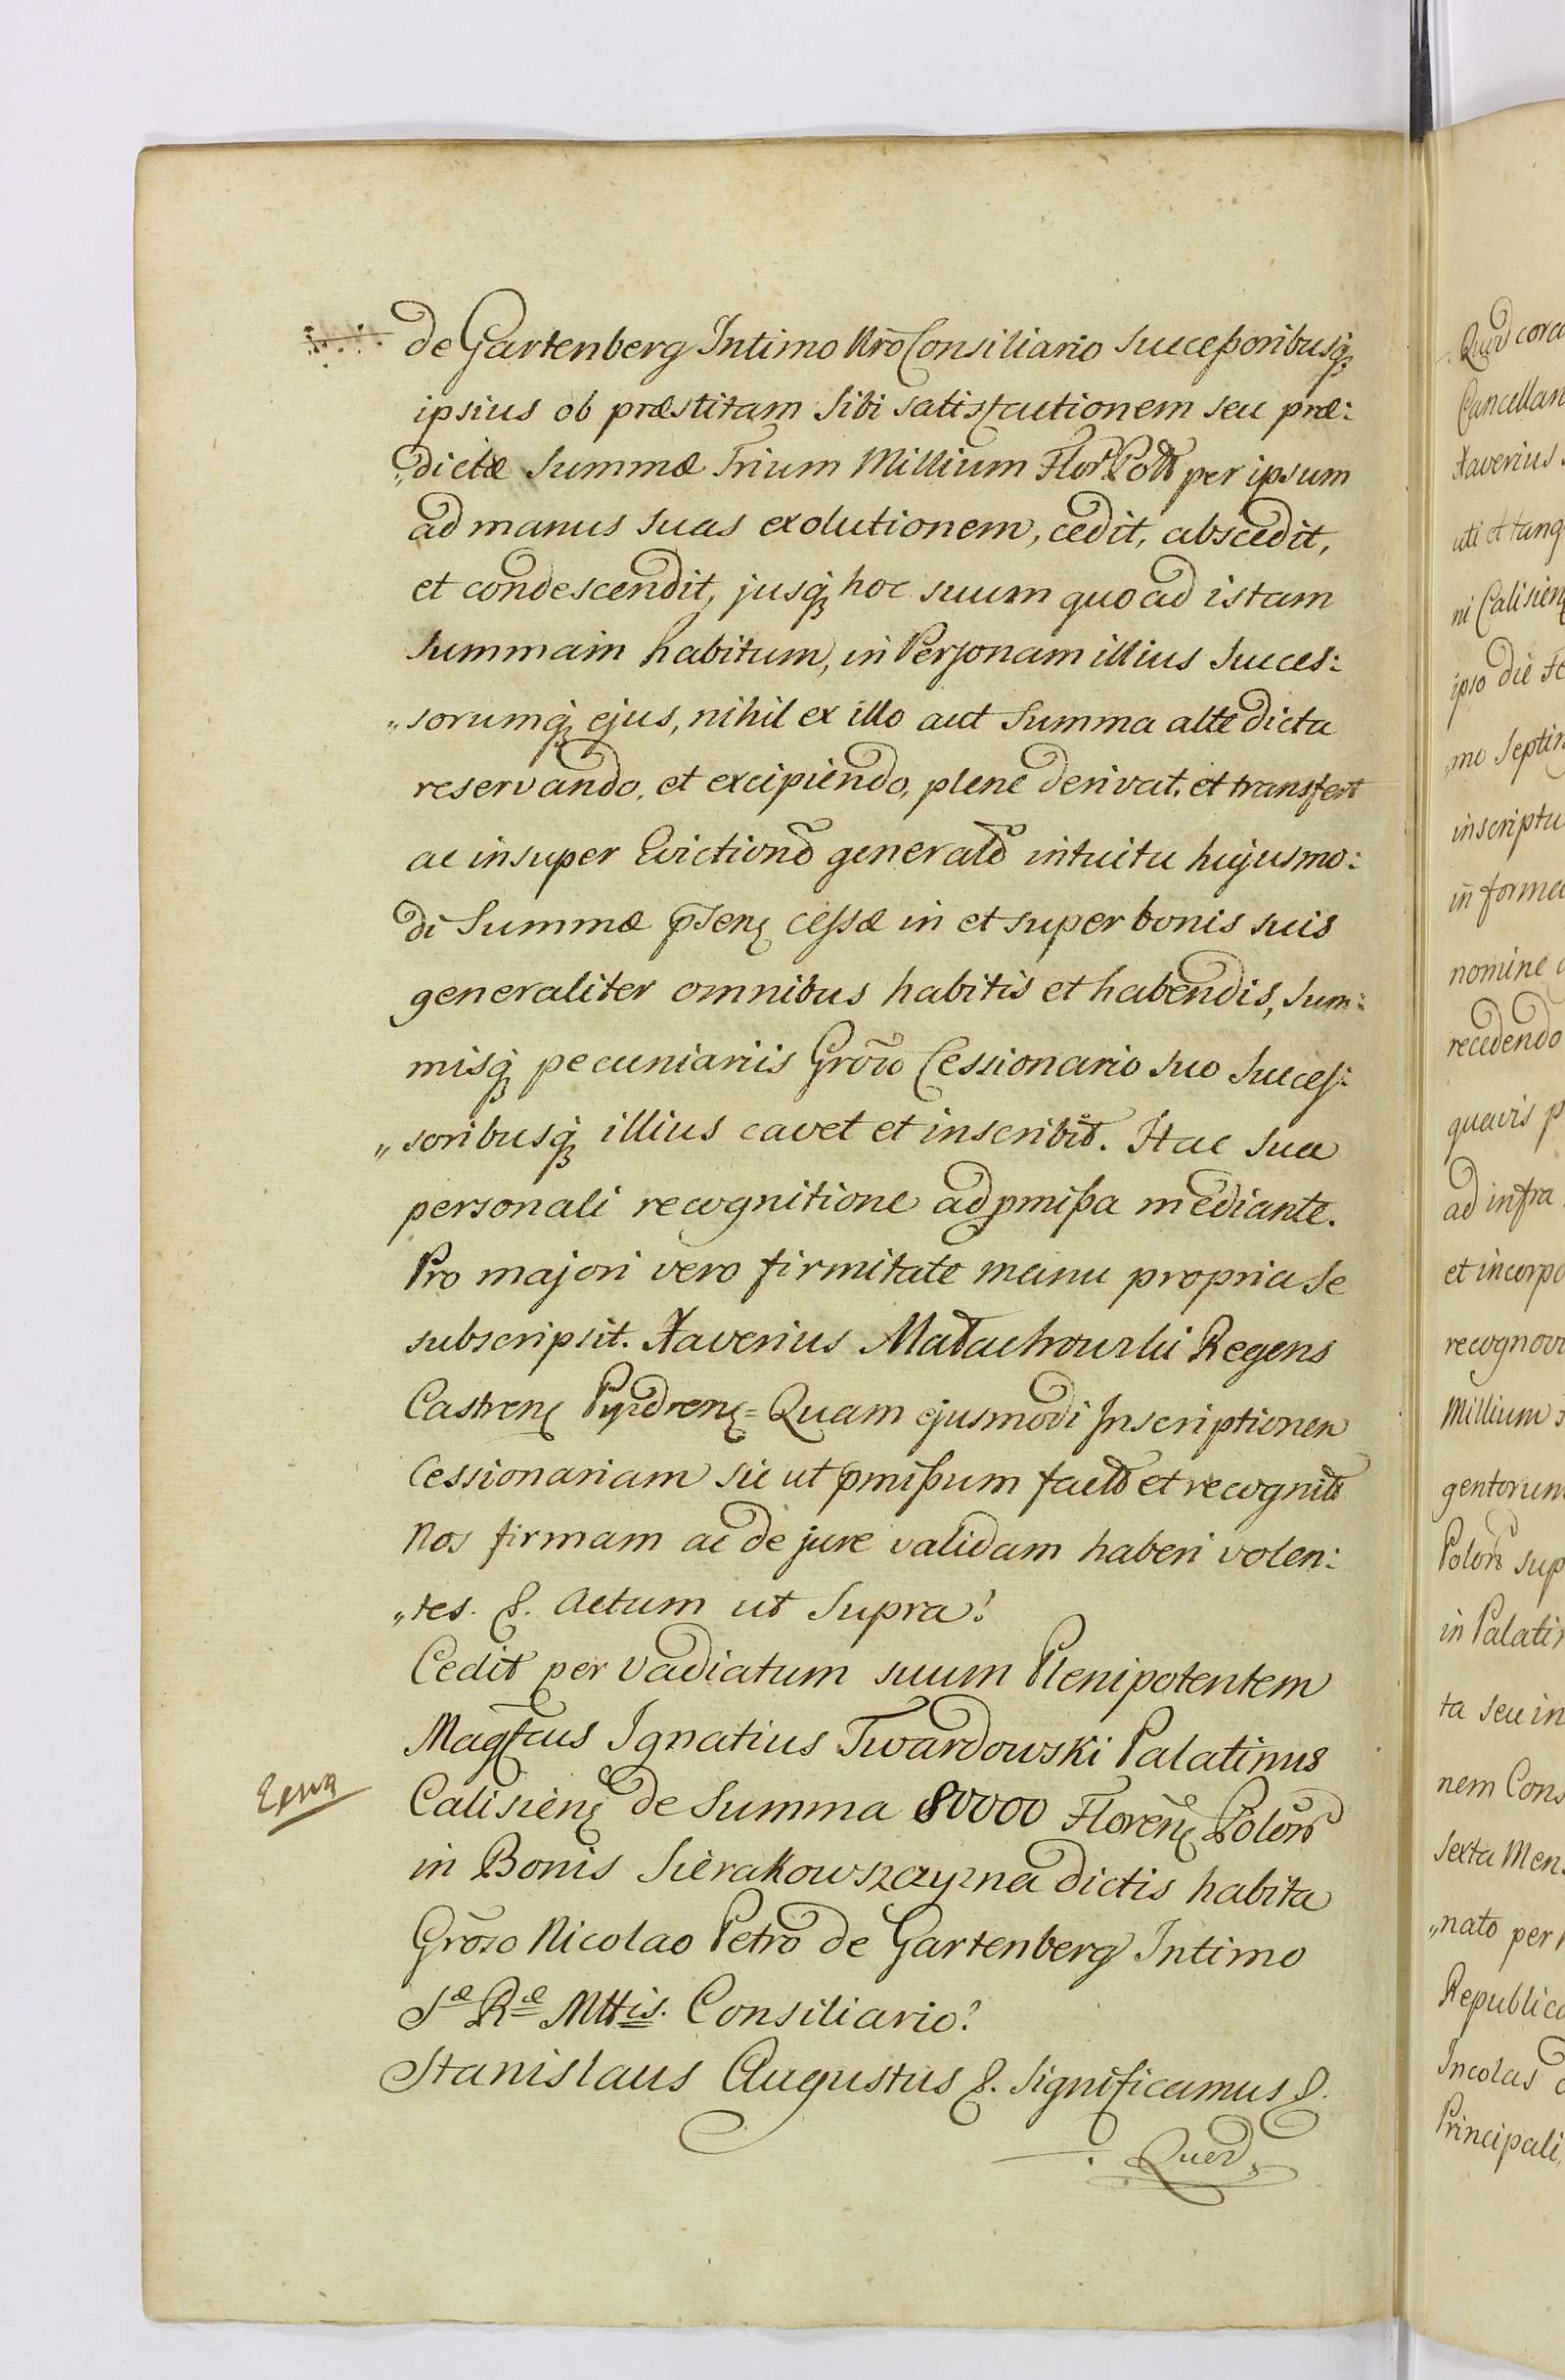 de Gartenberg Intimo Nrō Consiliario Successoribusq̨
ipsius ob præstitam sibi satisfactionem seu præ:
„dictæ Summæ Trium Millium Flor: Poll per ipsum
ad manus suas exolutionem, cedit, abscedit,
et condescendit, jusq̨ hoc suum quoad istam
Summam habitum, in Personam illius Succes:
„sorumq̨ ejus, nihil ex illo aut Summa alte dicta
reservando, et excipiendo, plene derivat, et transfert
ac insuper Evictionē generalē intuitu hujusmo:
di Summæ p̄sen̨ cessæ in et super bonis suis
generaliter omnibus habitis et habendis, Sum:
misq̨ pecuniariis Grōso Cessionario suo Succes:
„soribusq̨ illius cavet et inscribit. Hac sua
personali recognitione ad p̄missa mediante.
Pro majori vero firmitate manu propria se
subscripsit. Xaverius Małachowski Regens
Castren̨ Pyzdren̨ = Quam ejusmodi Inscriptionem
Cessionariam sic ut p̄missum fact et recognit
Nos firmam ac de jure validam haberi volen:
„tes. &. Actum ut Supra.
Cedit per Vadiatum suum Plenipotentem
Magfcus Ignatius Twardowski Palatinus
Calisien̨ de Summa 80000 Floren̨ Polon
in Bonis Sierakowszczyzna dictis habita
Grōso Nicolao Petro de Gartenberg Intimo
Sæ Ræ Mttis. Consiliario.
Stanislaus Augustus &. Significamus &.
Quod
Quod
Cancellari
Xaverius
uti et tanq
ni Calisien̨
ipso die Fe
„mo Septin
inscriptu
in forma
nomine
recedendo
quavis p
ad infra
et incorpo
recognovi
Millium
gentorum
Polon sup
in Palatin
ta seu in
nem Cons
Sexta Mens
„nato per
Republica
Incolas
Principali